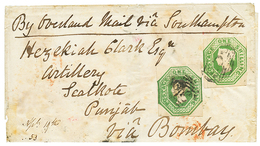 By Overland Mail viâ Southampton
Hezekiah Clark Esqr
Artillery
Sealkote
Punjab
viâ Bombay
ONE SHILLING
ONE SHILLING